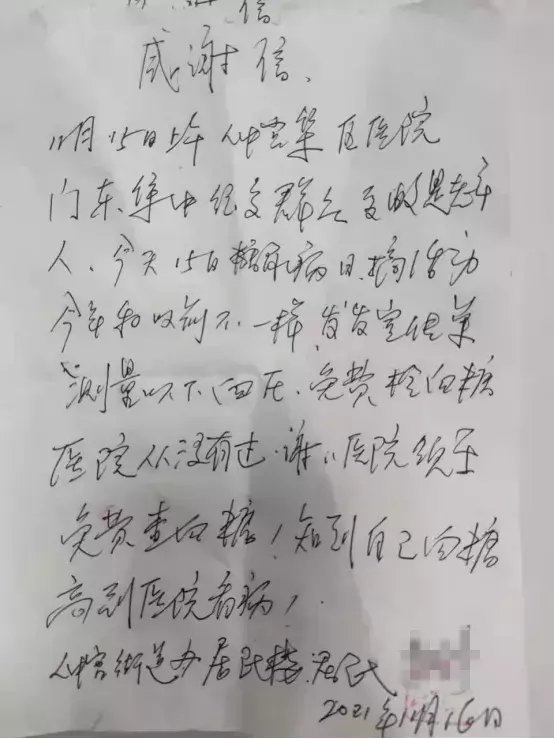 感谢信
感谢信、
11月15日上午 集区医院
门东集中 群众 是老年
人、今天15日糖尿病日、搞活动
今年和以前不一样,发发宣传单
测量以下血压、免费检血糖
医院从没有过、谢谢医院领导
免费查血糖!知到自己血糖
高到医院看病!
街道办居民楼 居民
2021年11月16日